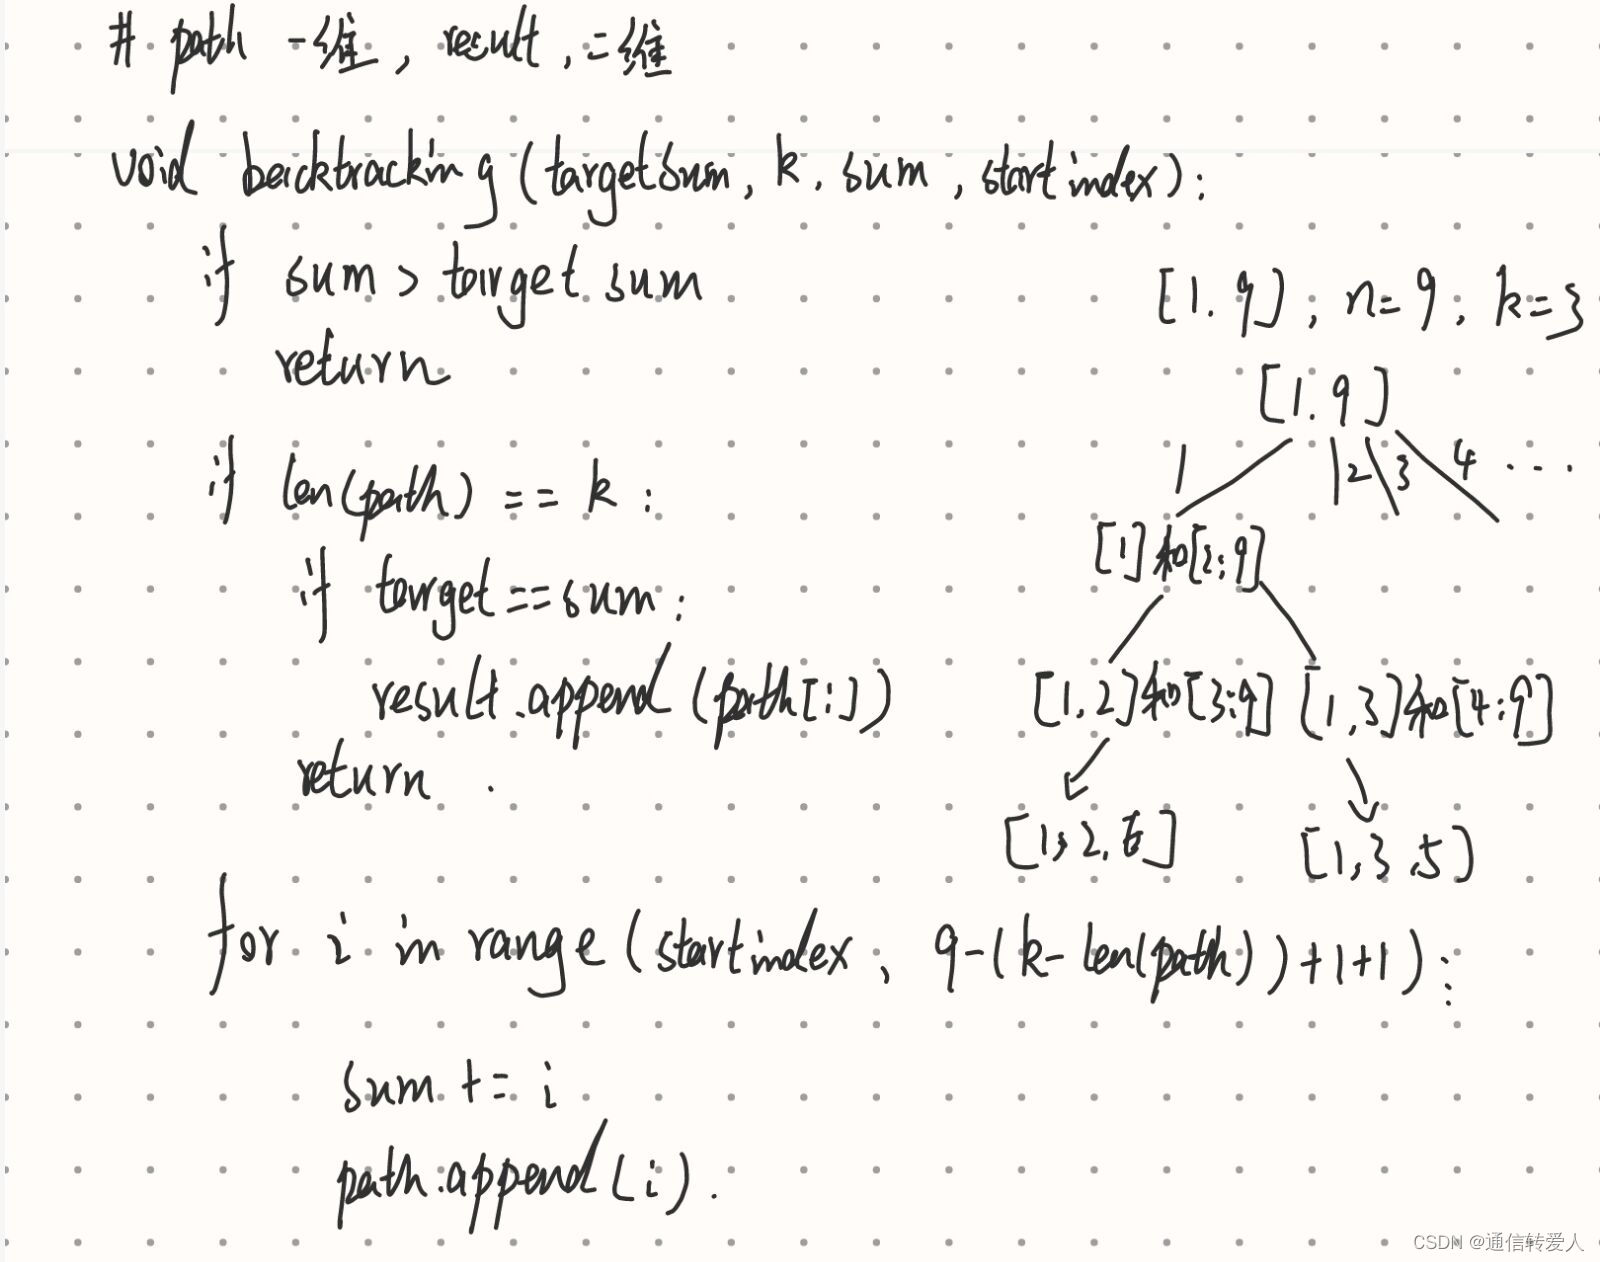 # path 一维, result, 二维
void backtracking(targetSum, k, sum, startindex):
if sum > target sum
return
if len(path) == k:
if target == sum:
result.append(path[:])
return.
for i in range(startindex, 9-(k-len(path))+1+1):
sum += i
path.append(i).
[1.9], n=9, k=3
[1.9]
1 2 3 4 ...
[1]和[2:9]
[1,2]和[3:9] [1,3]和[4:9]
[1,2,6] [1,3,5]
CSDN @通信转爱人